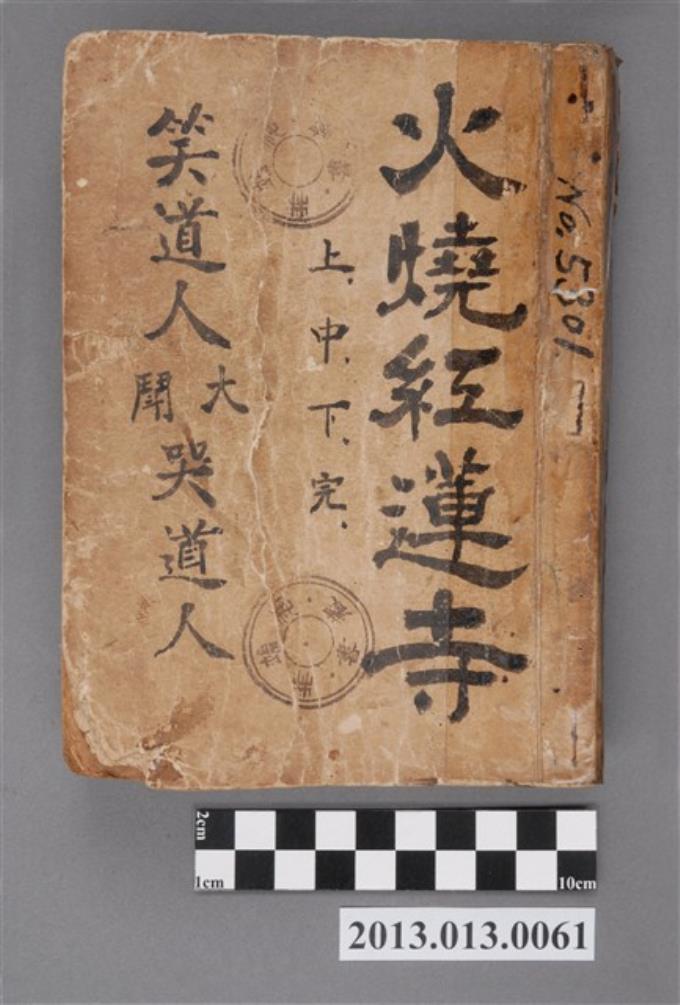 No. 5301.
火燒紅蓮寺
上、中、下、完、
笑道人
大
鬧
哭道人
2cm
1cm
10cm
2013.013.0061